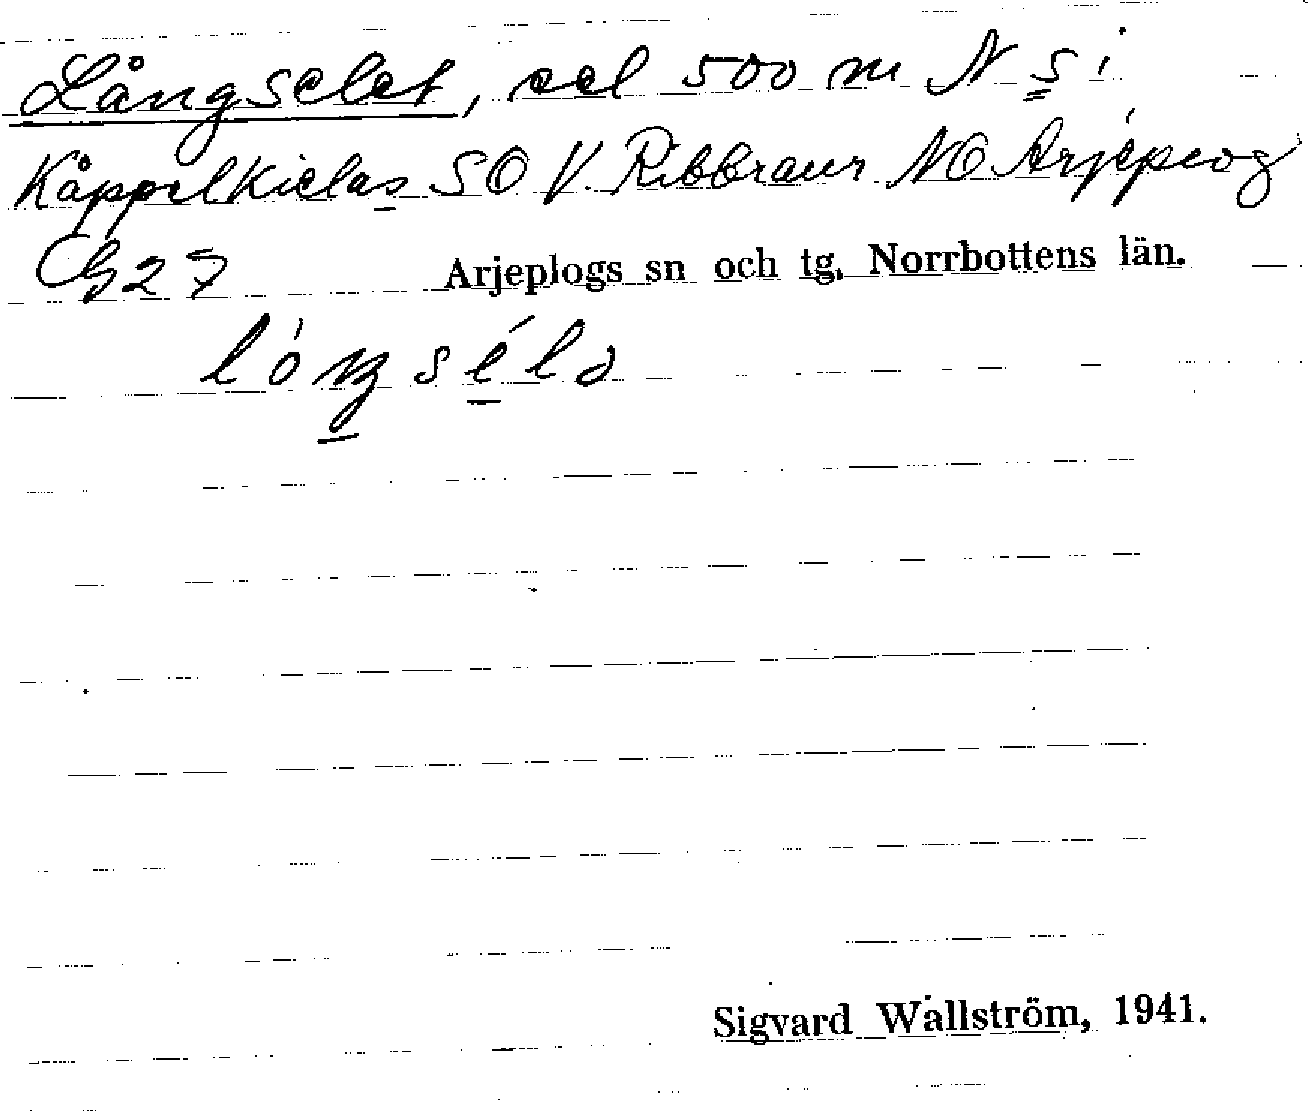 Långselet, sel 500 m N s i
Kåppelkielas SO V. Ribbraur NO Arjeplog
G27 Arjeplogs sn och tg, Norrbottens län.
lóŋsélə
Sigvard Wallström, 1941.